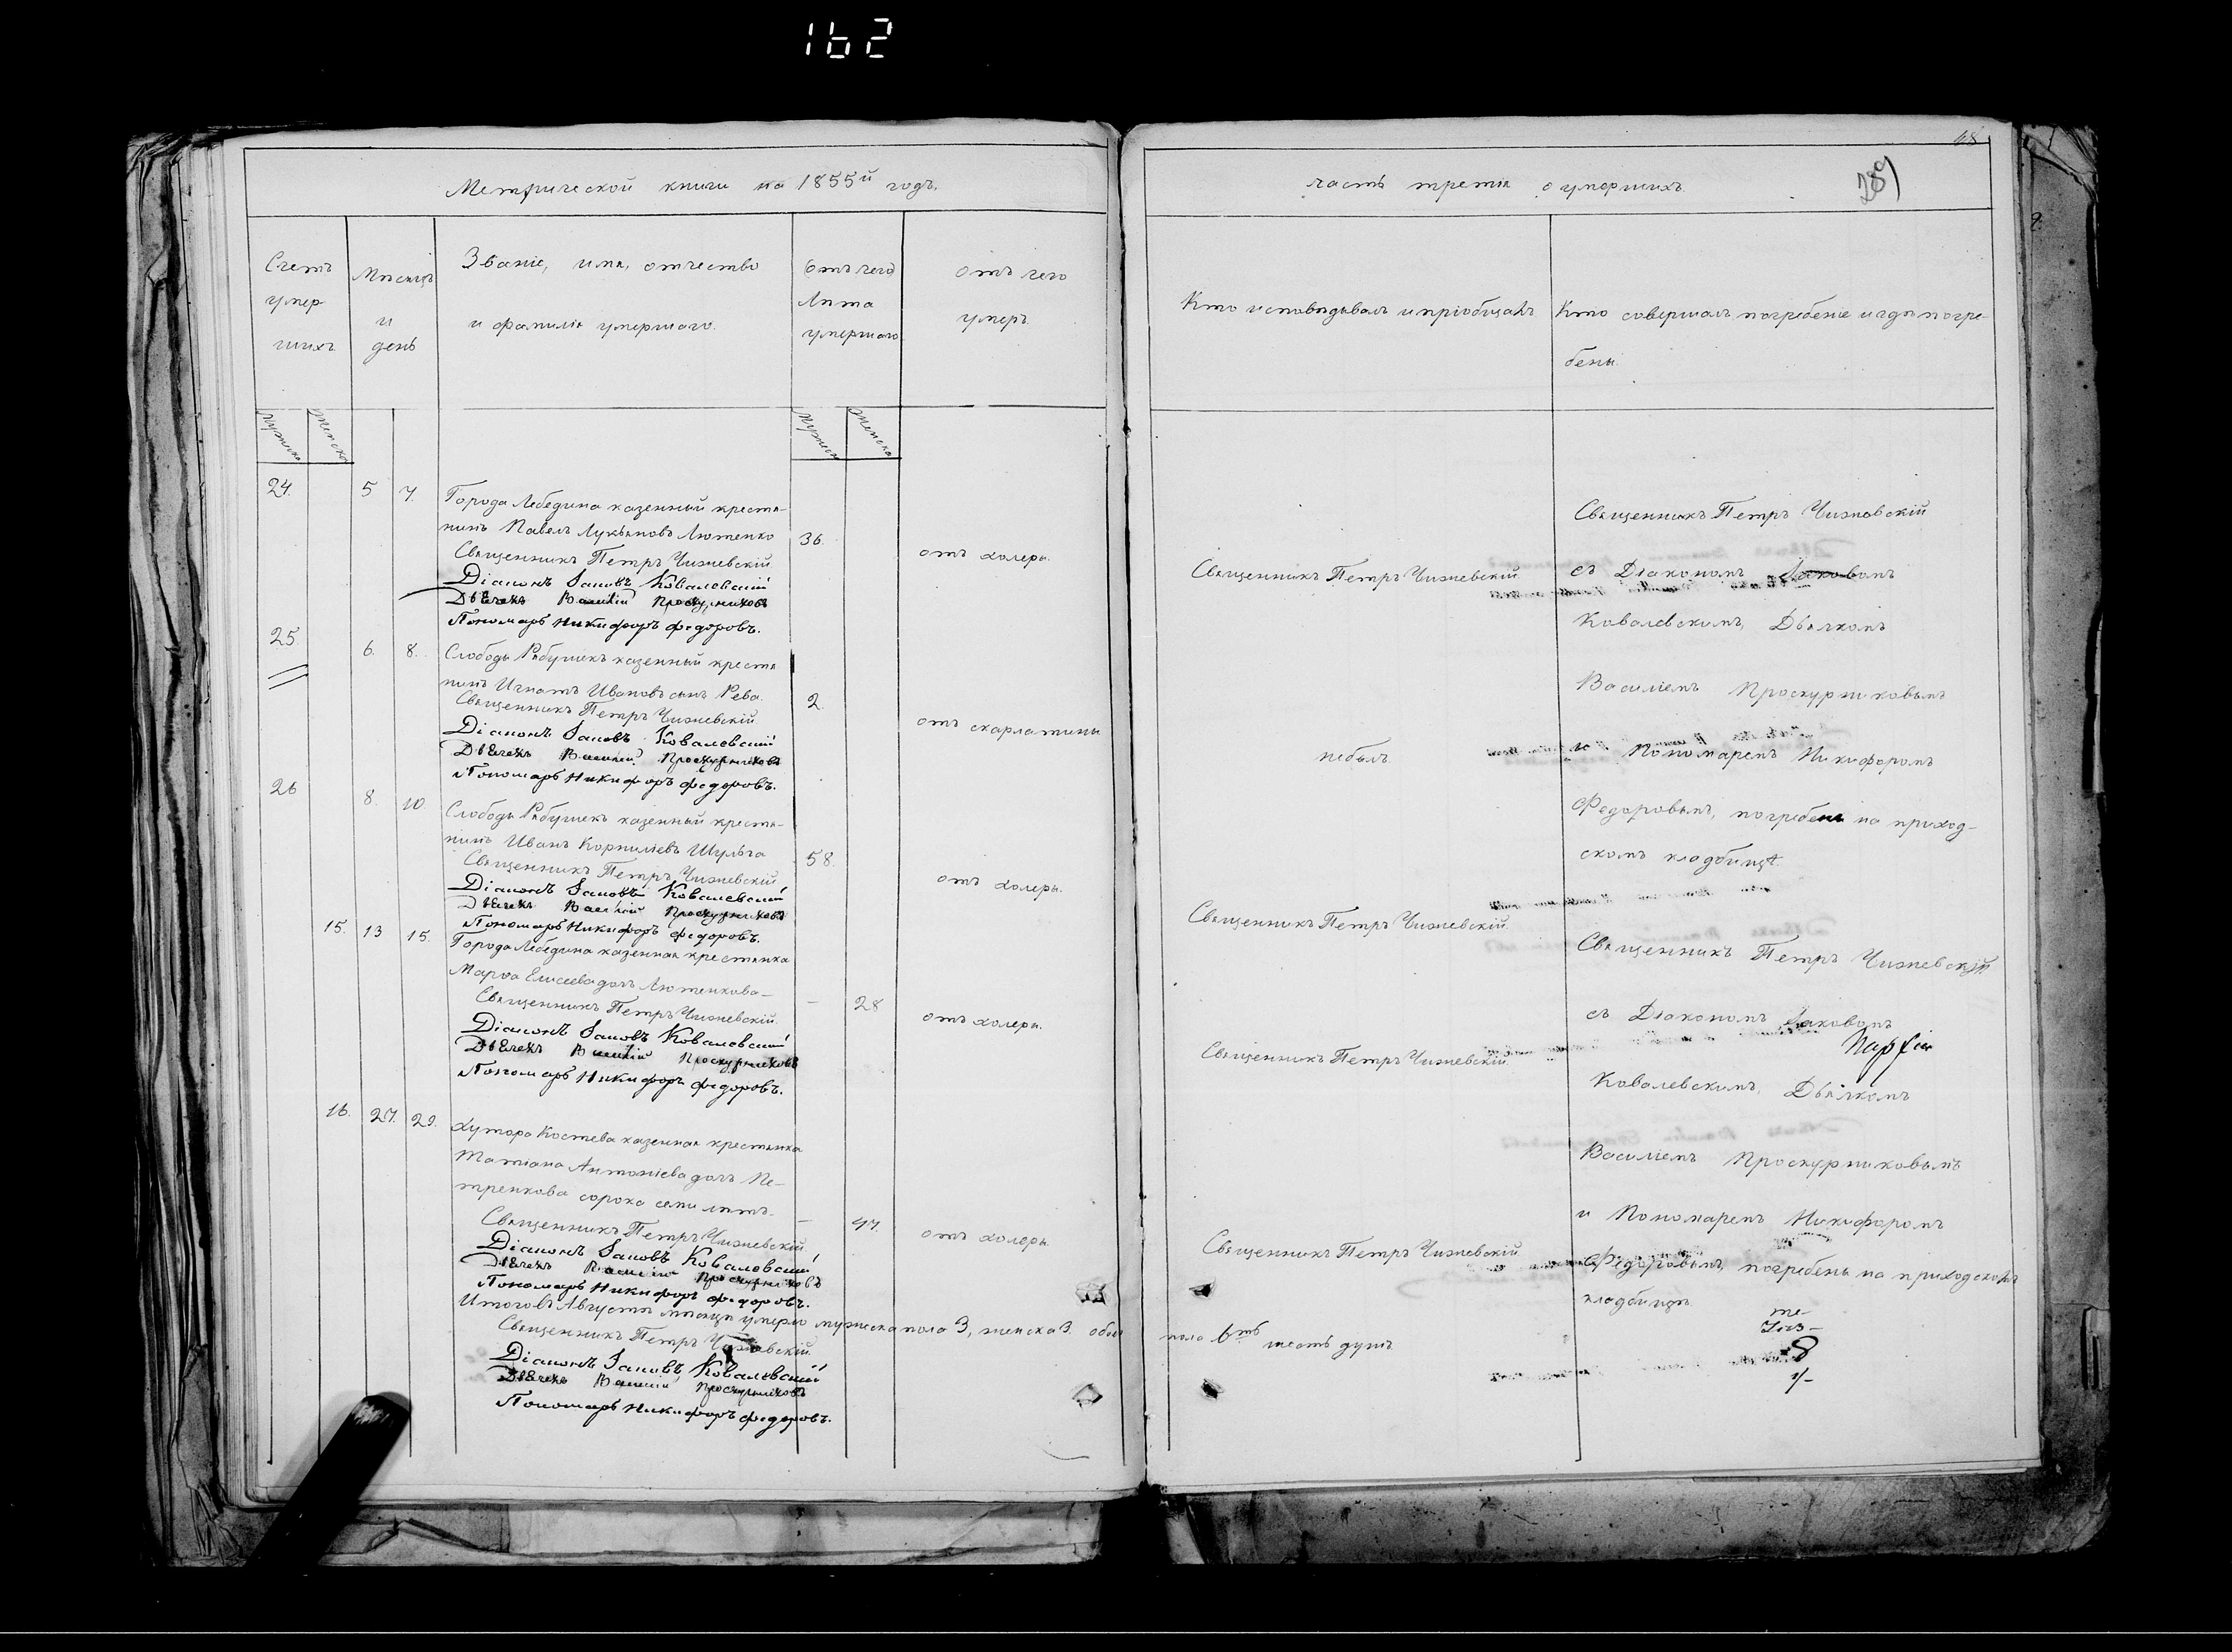 162
Метрической книги на 1855й годъ.
Счетъ
умер
шихъ
Мѣсяцъ
и
день
Званіе, имя, отчество
и фамилія умершаго.
Лѣта
умершаго
отъ чего
умеръ.
24. 5 7. Города Лебедина казенный крестя-
нинъ Павелъ Лукьяновъ Лютенко 36. отъ холеры.
Священникъ Петръ Чижевскій
Діаконъ Іаковъ Ковалевскій
Дьячекъ Василій Проскурниковъ
Пономарь Никифоръ Федоровъ.
25. 6. 8. Слободы Рябушекъ казенный крестя
нинъ Игнатъ Ивановъ сынъ Рева. 2. отъ скарлатины
Священникъ Петръ Чижевскій
Діаконъ Іаковъ Ковалевскій
Дьячекъ Василій Проскурниковъ
Пономарь Никифоръ Федоровъ.
26 8. 10. Слободы Рябушекъ казенный крестя-
нинъ Иванъ Корниліевъ Шульга 58. отъ холеры.
Священникъ Петръ Чижевскій
Діаконъ Іаковъ Ковалевскій
Дьячекъ Василій Проскурниковъ
Пономарь Никифоръ Федоровъ.
15. 13 15. Города Лебедина казенная крестянка
Марѳа Елисеева дочь Лютенкова — 28 отъ холеры.
Священникъ Петръ Чижевскій
Діаконъ Іаковъ Ковалевскій
Дьячекъ Василій Проскурниковъ
Пономарь Никифоръ Федоровъ.
16. 27. 29. Хутора Костева казенная крестянка
Татіана Антоніева дочь Пе-
тренкова сорока семи лѣтъ. — 47. отъ холеры.
Священникъ Петръ Чижевскій
Діаконъ Іаковъ Ковалевскій
Дьячекъ Василій Проскурниковъ
Пономарь Никифоръ Федоровъ.
Итого въ Августѣ мѣсяцѣ умерло мужеска пола 3, женска 3. обоего
Священникъ Петръ Чижевскій
Діаконъ Іаковъ Ковалевскій
Дьячекъ Василій Проскурниковъ
Пономарь Никифоръ Федоровъ.
часть третія о умершихъ.
Кто исповѣдывалъ и пріобщалъ
Кто совершалъ погребеніе и гдѣ погре-
бены.
Священникъ Петръ Чижевскій
небылъ
Священникъ Петръ Чижевскій
Священникъ Петръ Чижевскій
Священникъ Петръ Чижевскій
пола шесть душъ
Священникъ Петръ Чижевскій
съ Діакономъ Іаковомъ
Ковалевскимъ, Дьячкомъ
Василіемъ Проскурниковымъ
и Пономаремъ Никифоромъ
Федоровымъ, погребены на приход-
скомъ кладбищѣ.
Священникъ Петръ Чижевскій
съ Діакономъ Іаковомъ
Ковалевскимъ, Дьячкомъ
Василіемъ Проскурниковымъ
и Пономаремъ Никифоромъ
Федоровымъ, погребены на приходскомъ
кладбищѣ.